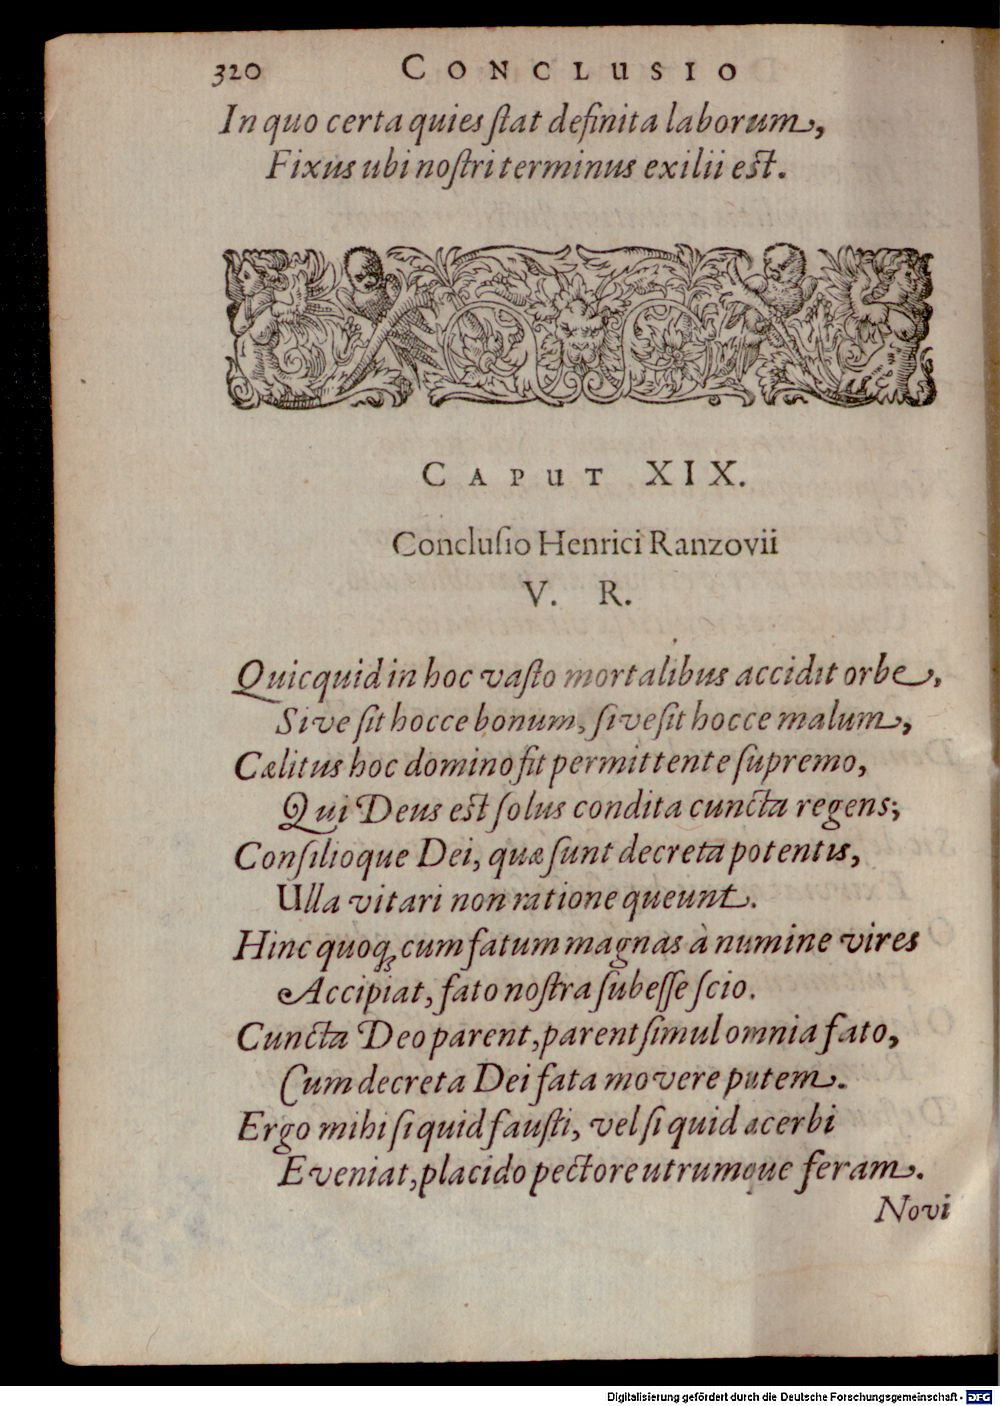 320 CONCLUSIO
In quo certa quies ſtat definita laborum,
Fixus ubi noſtri terminus exilii est.
CAPUT XIX.
Concluſio Henrici Ranzovii
V. R.
Quicquid in hoc vaſto mortalibus accidit orbe,
Sive ſit hocce bonum, ſive ſit hocce malum,
Cælitus hoc domino fit permittente ſupremo,
Qui Deus est ſolus condita cuncta regens;
Conſilioque Dei, quæ ſunt decreta potentis,
Ulla vitari non ratione queunt.
Hinc quoq; cum fatum magnas à numine vires
Accipiat, fato noſtra ſubeſſe ſcio.
Cuncta Deo parent, parent ſimul omnia fato,
Cum decreta Dei fata movere putem.
Ergo mihi ſi quid fauſti, vel ſi quid acerbi
Eveniat, placido pectore utrumque feram.
Novi
Digitalisierung gefördert durch die Deutsche Forschungsgemeinschaft - DFG